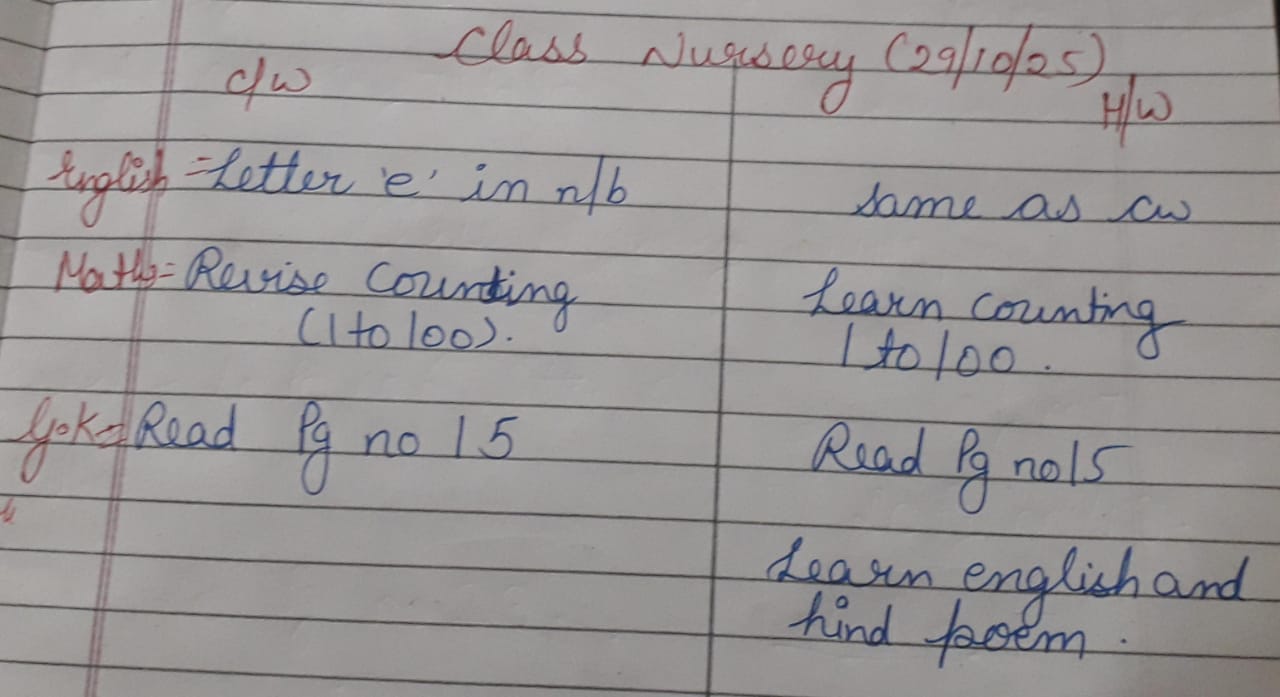 Class Nursery (29/10/25)
c/w
H/W
English = Letter 'e' in n/b
same as cw
Maths = Revise Counting
(1 to 100).
Learn counting
1 to 100.
G.K = Read Pg no 15
Read Pg no 15
Learn english and
hind poem.